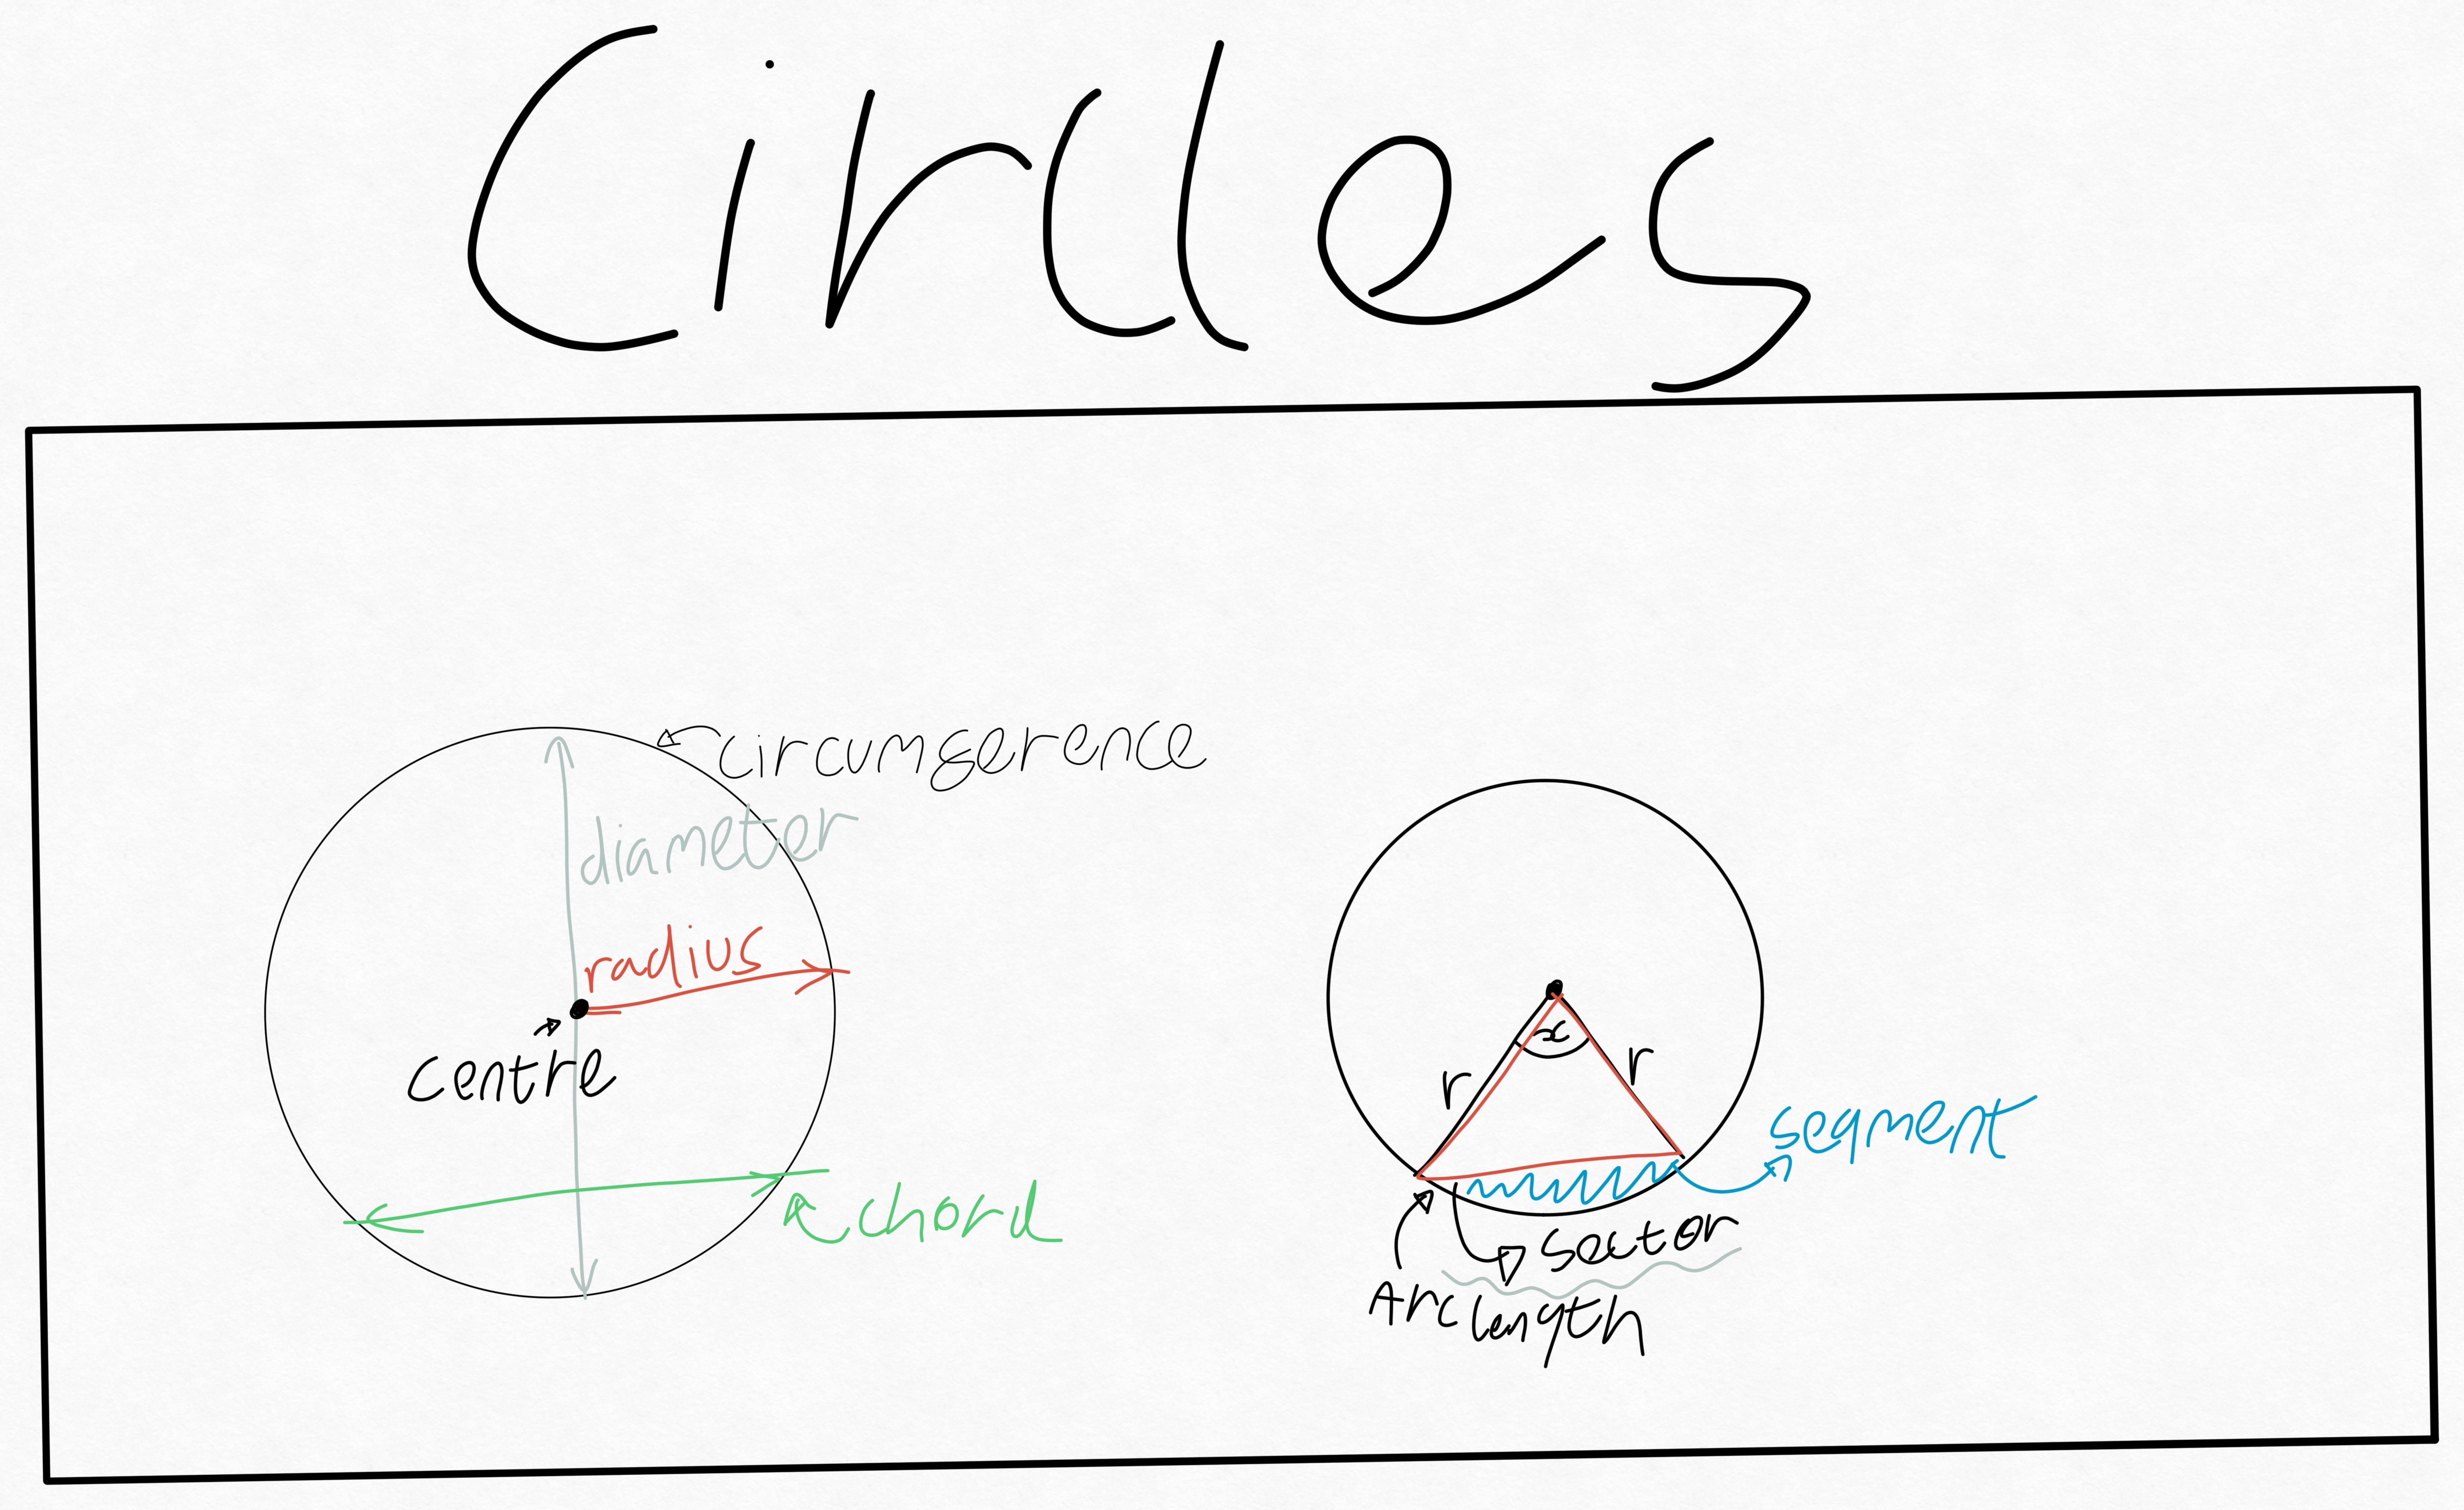 Circles
circumference
diameter
radius
centre
chord
x
r
r
segment
sector
Arc length